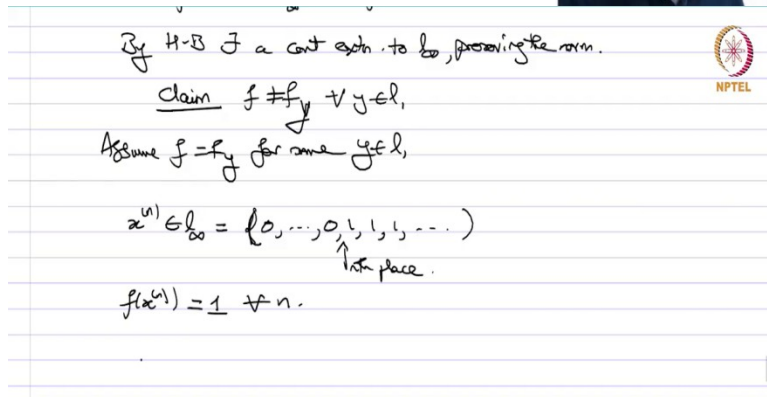 By H-B ∃ a cont extn. to l∞, preserving the norm.
NPTEL
Claim f ≠ f_y ∀ y ∈ l₁
Assume f = f_y for some y ∈ l₁
x⁽ⁿ⁾ ∈ l∞ = (0, ..., 0, 1, 1, 1, ...)
↑ nth place.
f(x⁽ⁿ⁾) = 1 ∀ n.